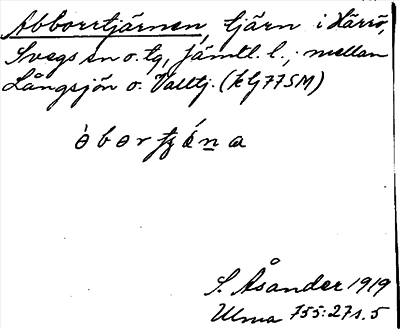 Abborrtjärnen, tjärn i Härrö,
Svegs sn o. tg, Jämtl. l.; mellan
Långsjön o. Valltj. (kG77SM)
S. Åsander 1919
Ulma 755:27 s. 5